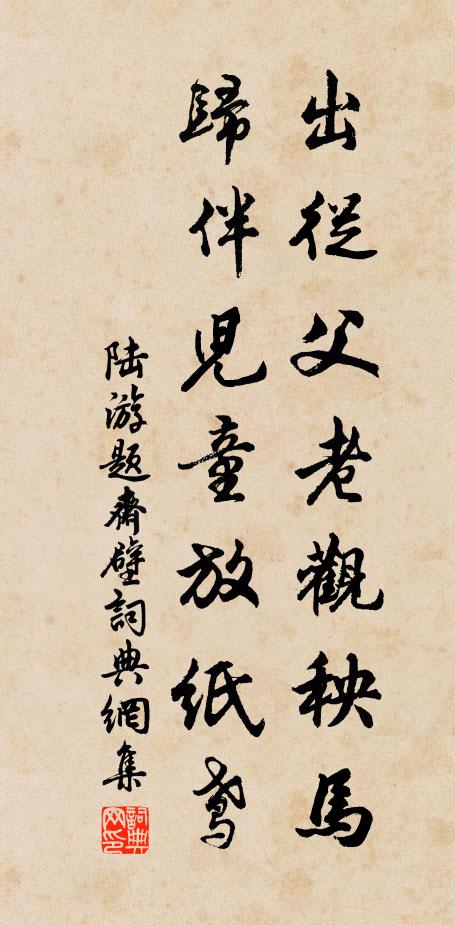 出從父老觀秧馬
歸伴兒童放紙鳶
陆游題齋壁詞典網集
詞典网印